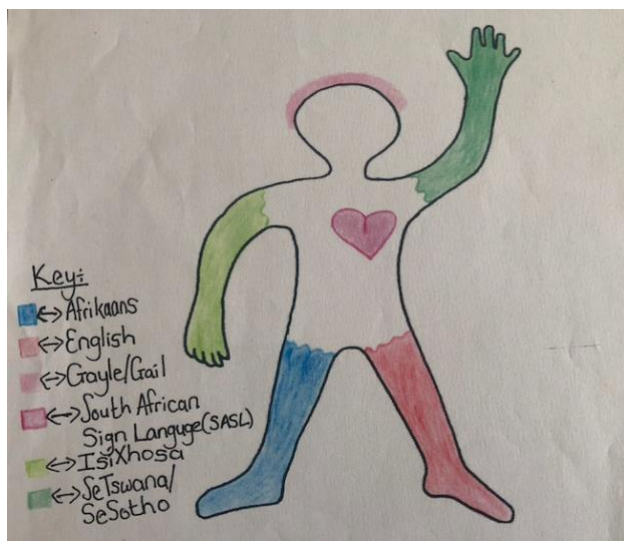 Key:
↔ Afrikaans
↔ English
↔ Gayle/Gail
↔ South African
Sign Languge (SASL)
↔ IsiXhosa
↔ SeTswana/
SeSotho